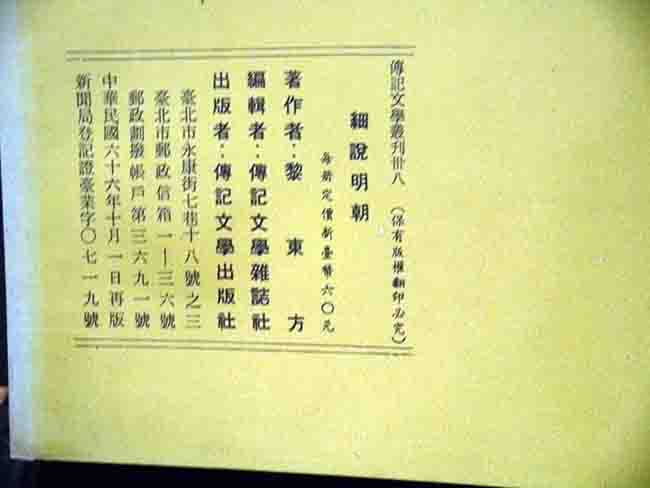 傳記文學叢刊卅八 (保有版權翻印必究)
細說明朝
每册定價新臺幣六〇元
著作者：黎東方
編輯者：傳記文學雜誌社
出版者：傳記文學出版社
臺北市永康街七巷十八號之三
臺北市郵政信箱一—三六號
郵政劃撥帳戶第三六九一號
中華民國六十六年十月一日再版
新聞局登記證臺業字〇七一九號